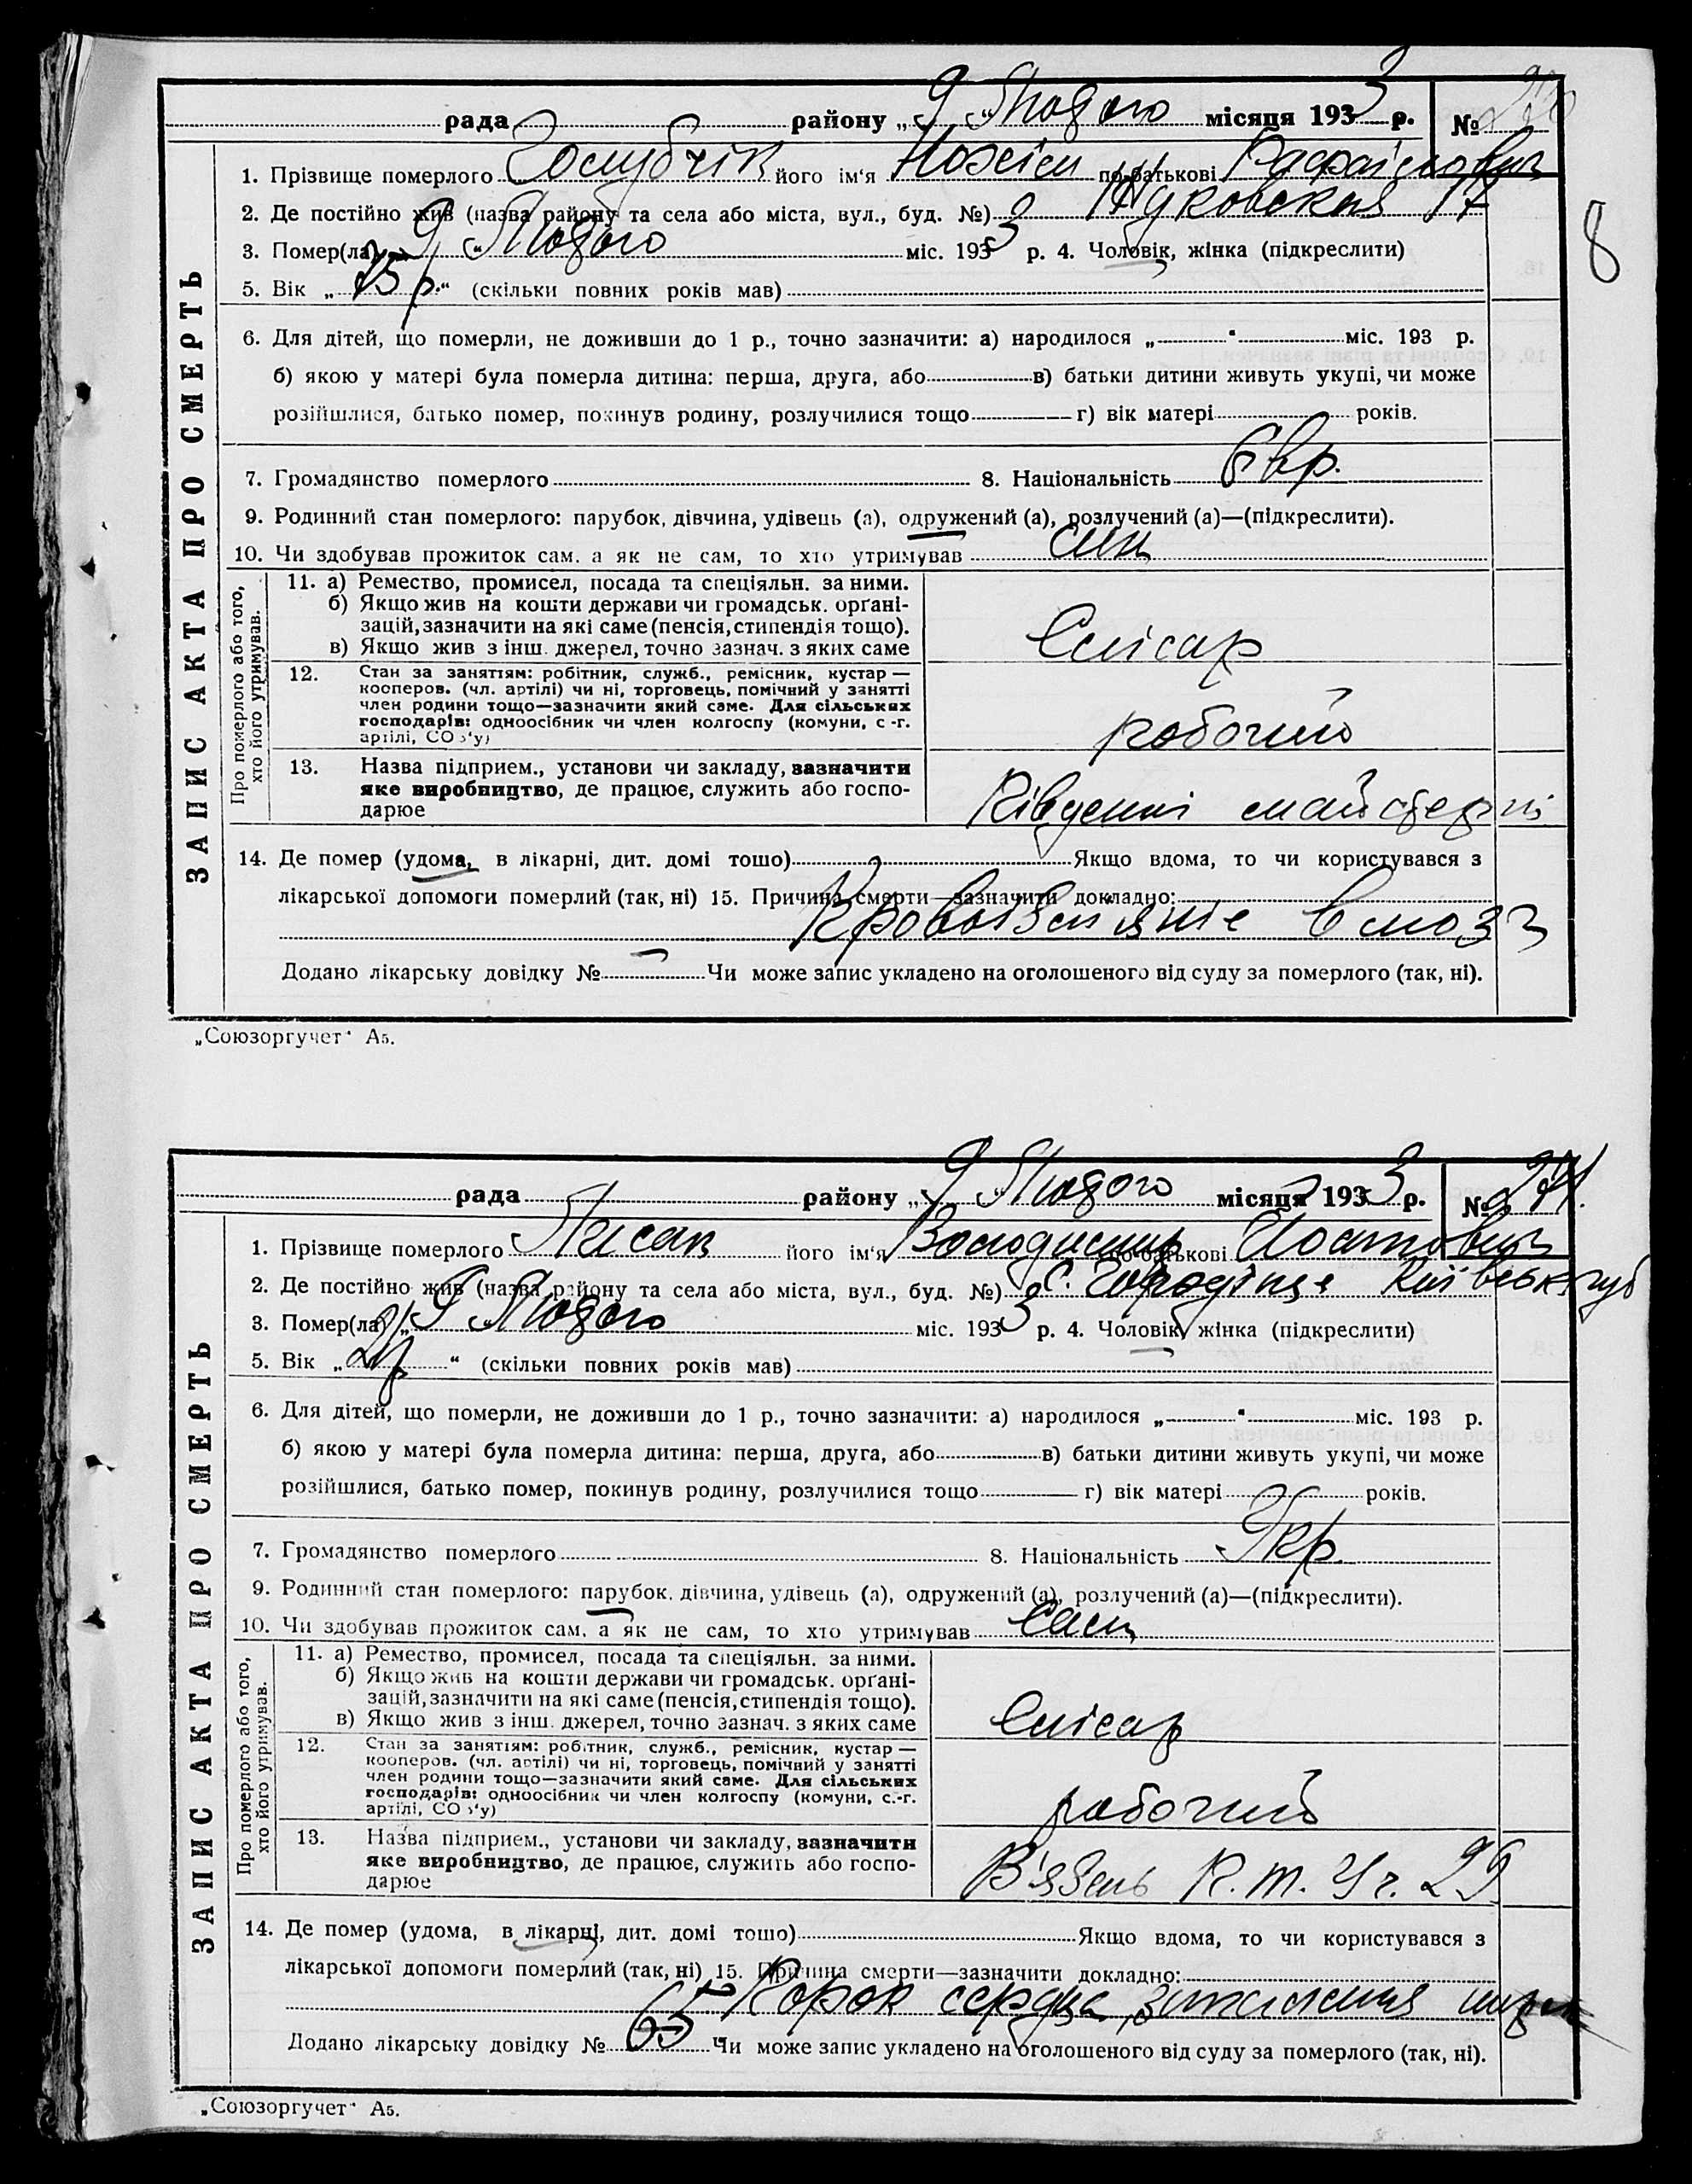 рада района „9“ Лютого місяця 1933 р. №
8
1. Прізвище померлого Голубчік його ім'я по-батькові Рафаілович
2. Де постійно жив (назва району та села або міста, вул., буд. №) 17
3. Помер(ла) „9“ Лютого міс. 1933 р. 4. Чоловік, жінка (підкреслити)
5. Вік „75 р.“ (скільки повних років мав)
6. Для дітей, що померли, не доживши до 1 р., точно зазначити: а) народилося „ “ міс. 193 р.
б) якою у матері була померла дитина: перша, друга, або в) батьки дитини живуть укупі, чи може
розійшлися, батько помер, покинув родину, розлучилися тощо г) вік матері років.
7. Громадянство померлого 8. Національність Євр.
9. Родинний стан померлого: парубок, дівчина, удівець (а), одружений (а), розлучений (а)—(підкреслити).
10. Чи здобував прожиток сам, а як не сам, то хто утримував син
ЗАПИС АКТА ПРО СМЕРТЬ
Про померлого або того, хто його утримував.
11. а) Ремество, промисел, посада та спеціяльн. за ними.
б) Якщо жив на кошти держави чи громадськ. орґані-
зацій, зазначити на які саме (пенсія, стипендія тощо).
в) Якщо жив з інш. джерел, точно зазнач. з яких саме
Слісар
12. Стан за заняттям: робітник, служб., ремісник, кустар—
кооперов. (чл. артілі) чи ні, торговець, помічний у занятті
член родини тощо—зазначити який саме. Для сільських
господарів: одноосібник чи член колгоспу (комуни, с.-г.
артілі, СОЗ'у)
робочий
13. Назва підприєм., установи чи закладу, зазначити
яке виробництво, де працює, служить або госпо-
дарює
Південні майстерні
14. Де помер (удома, в лікарні, дит. домі тощо) Якщо вдома, то чи користувався з
лікарської допомоги померлий (так, ні) 15. Причина смерти—зазначити докладно:
Кровоізліяніе в мозг
Додано лікарську довідку № Чи може запис укладено на оголошеного від суду за померлого (так, ні).
„Союзоргучет“ А5.
рада району „9“ Лютого місяця 1933 р. № 271.
1. Прізвище померлого Лисак його ім'я Володимир по-батькові
2. Де постійно жив (назва району та села або міста, вул., буд. №) С. Городище Київськ губ
3. Помер(ла) „9“ Лютого міс. 1933 р. 4. Чоловік, жінка (підкреслити)
5. Вік „ “ (скільки повних років мав)
6. Для дітей, що померли, не доживши до 1 р., точно зазначити: а) народилося „ “ міс. 193 р.
б) якою у матері була померла дитина: перша, друга, або в) батьки дитини живуть укупі, чи може
розійшлися, батько помер, покинув родину, розлучилися тощо г) вік матері років.
7. Громадянство померлого 8. Національність Укр.
9. Родинний стан померлого: парубок, дівчина, удівець (а), одружений (а), розлучений (а)—(підкреслити).
10. Чи здобував прожиток сам, а як не сам, то хто утримував Сам
ЗАПИС АКТА ПРО СМЕРТЬ
Про померлого або того, хто його утримував.
11. а) Ремество, промисел, посада та спеціяльн. за ними.
б) Якщо жив на кошти держави чи громадськ. орґані-
зацій, зазначити на які саме (пенсія, стипендія тощо).
в) Якщо жив з інш. джерел, точно зазнач. з яких саме
Слісар
12. Стан за заняттям: робітник, служб., ремісник, кустар—
кооперов. (чл. артілі) чи ні, торговець, помічний у занятті
член родини тощо—зазначити який саме. Для сільських
господарів: одноосібник чи член колгоспу (комуни, с.-г.
артілі, СОЗ'у)
рабочий
13. Назва підприєм., установи чи закладу, зазначити
яке виробництво, де працює, служить або госпо-
дарює
В'язень К. т. Уч. 29
14. Де помер (удома, в лікарні, дит. домі тощо) Якщо вдома, то чи користувався з
лікарської допомоги померлий (так, ні) 15. Причина смерти—зазначити докладно:
Порок сердца, запалення нирок
Додано лікарську довідку № 65 Чи може запис укладено на оголошеного від суду за померлого (так, ні).
„Союзоргучет“ А5.